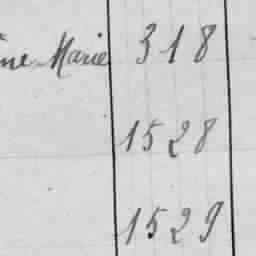 ne Marie 318
1528
1529